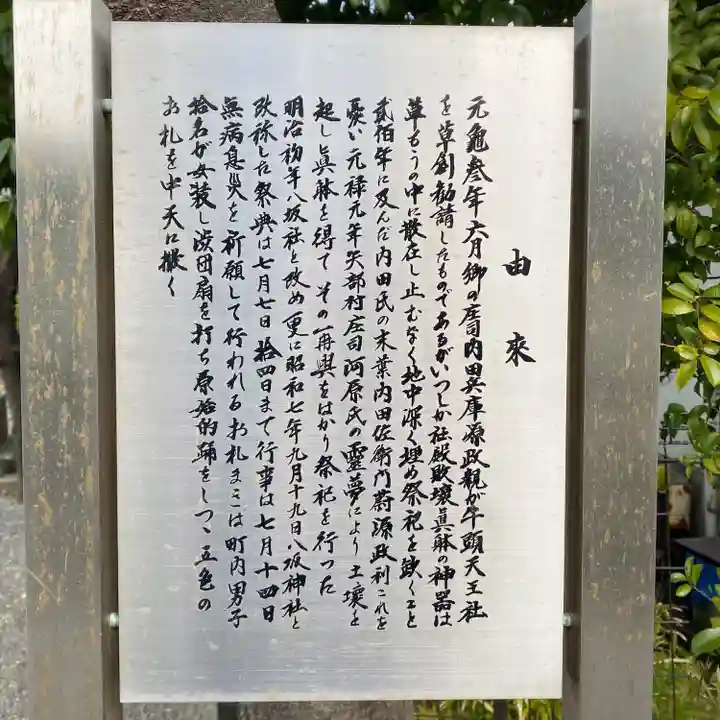 由来
元龜叁年六月郷の庄司内田兵庫源政親が牛頭天王社
を草創勧請したものであるがいつしか社殿敗壊眞躰の神器は
草もうの中に散在し止むなく地中深く埋め祭祀を欽くこと
貳佰年に及んだ内田氏の末葉内田佐衛門尉源政利これを
憂い元禄元年矢部村庄司阿原氏の靈夢により土壌を
起し眞躰を得てその再興をはかり祭祀を行った
明治初年八坂社と改め更に昭和七年九月十九日八坂神社と
改称した祭典は七月七日拾四日まで行事は七月十四日
無病息災を祈願して行われるお札まきは町内男子
拾名が女装し渋団扇を打ち原始的踊をしつゝ五色の
お札を中天に撒く